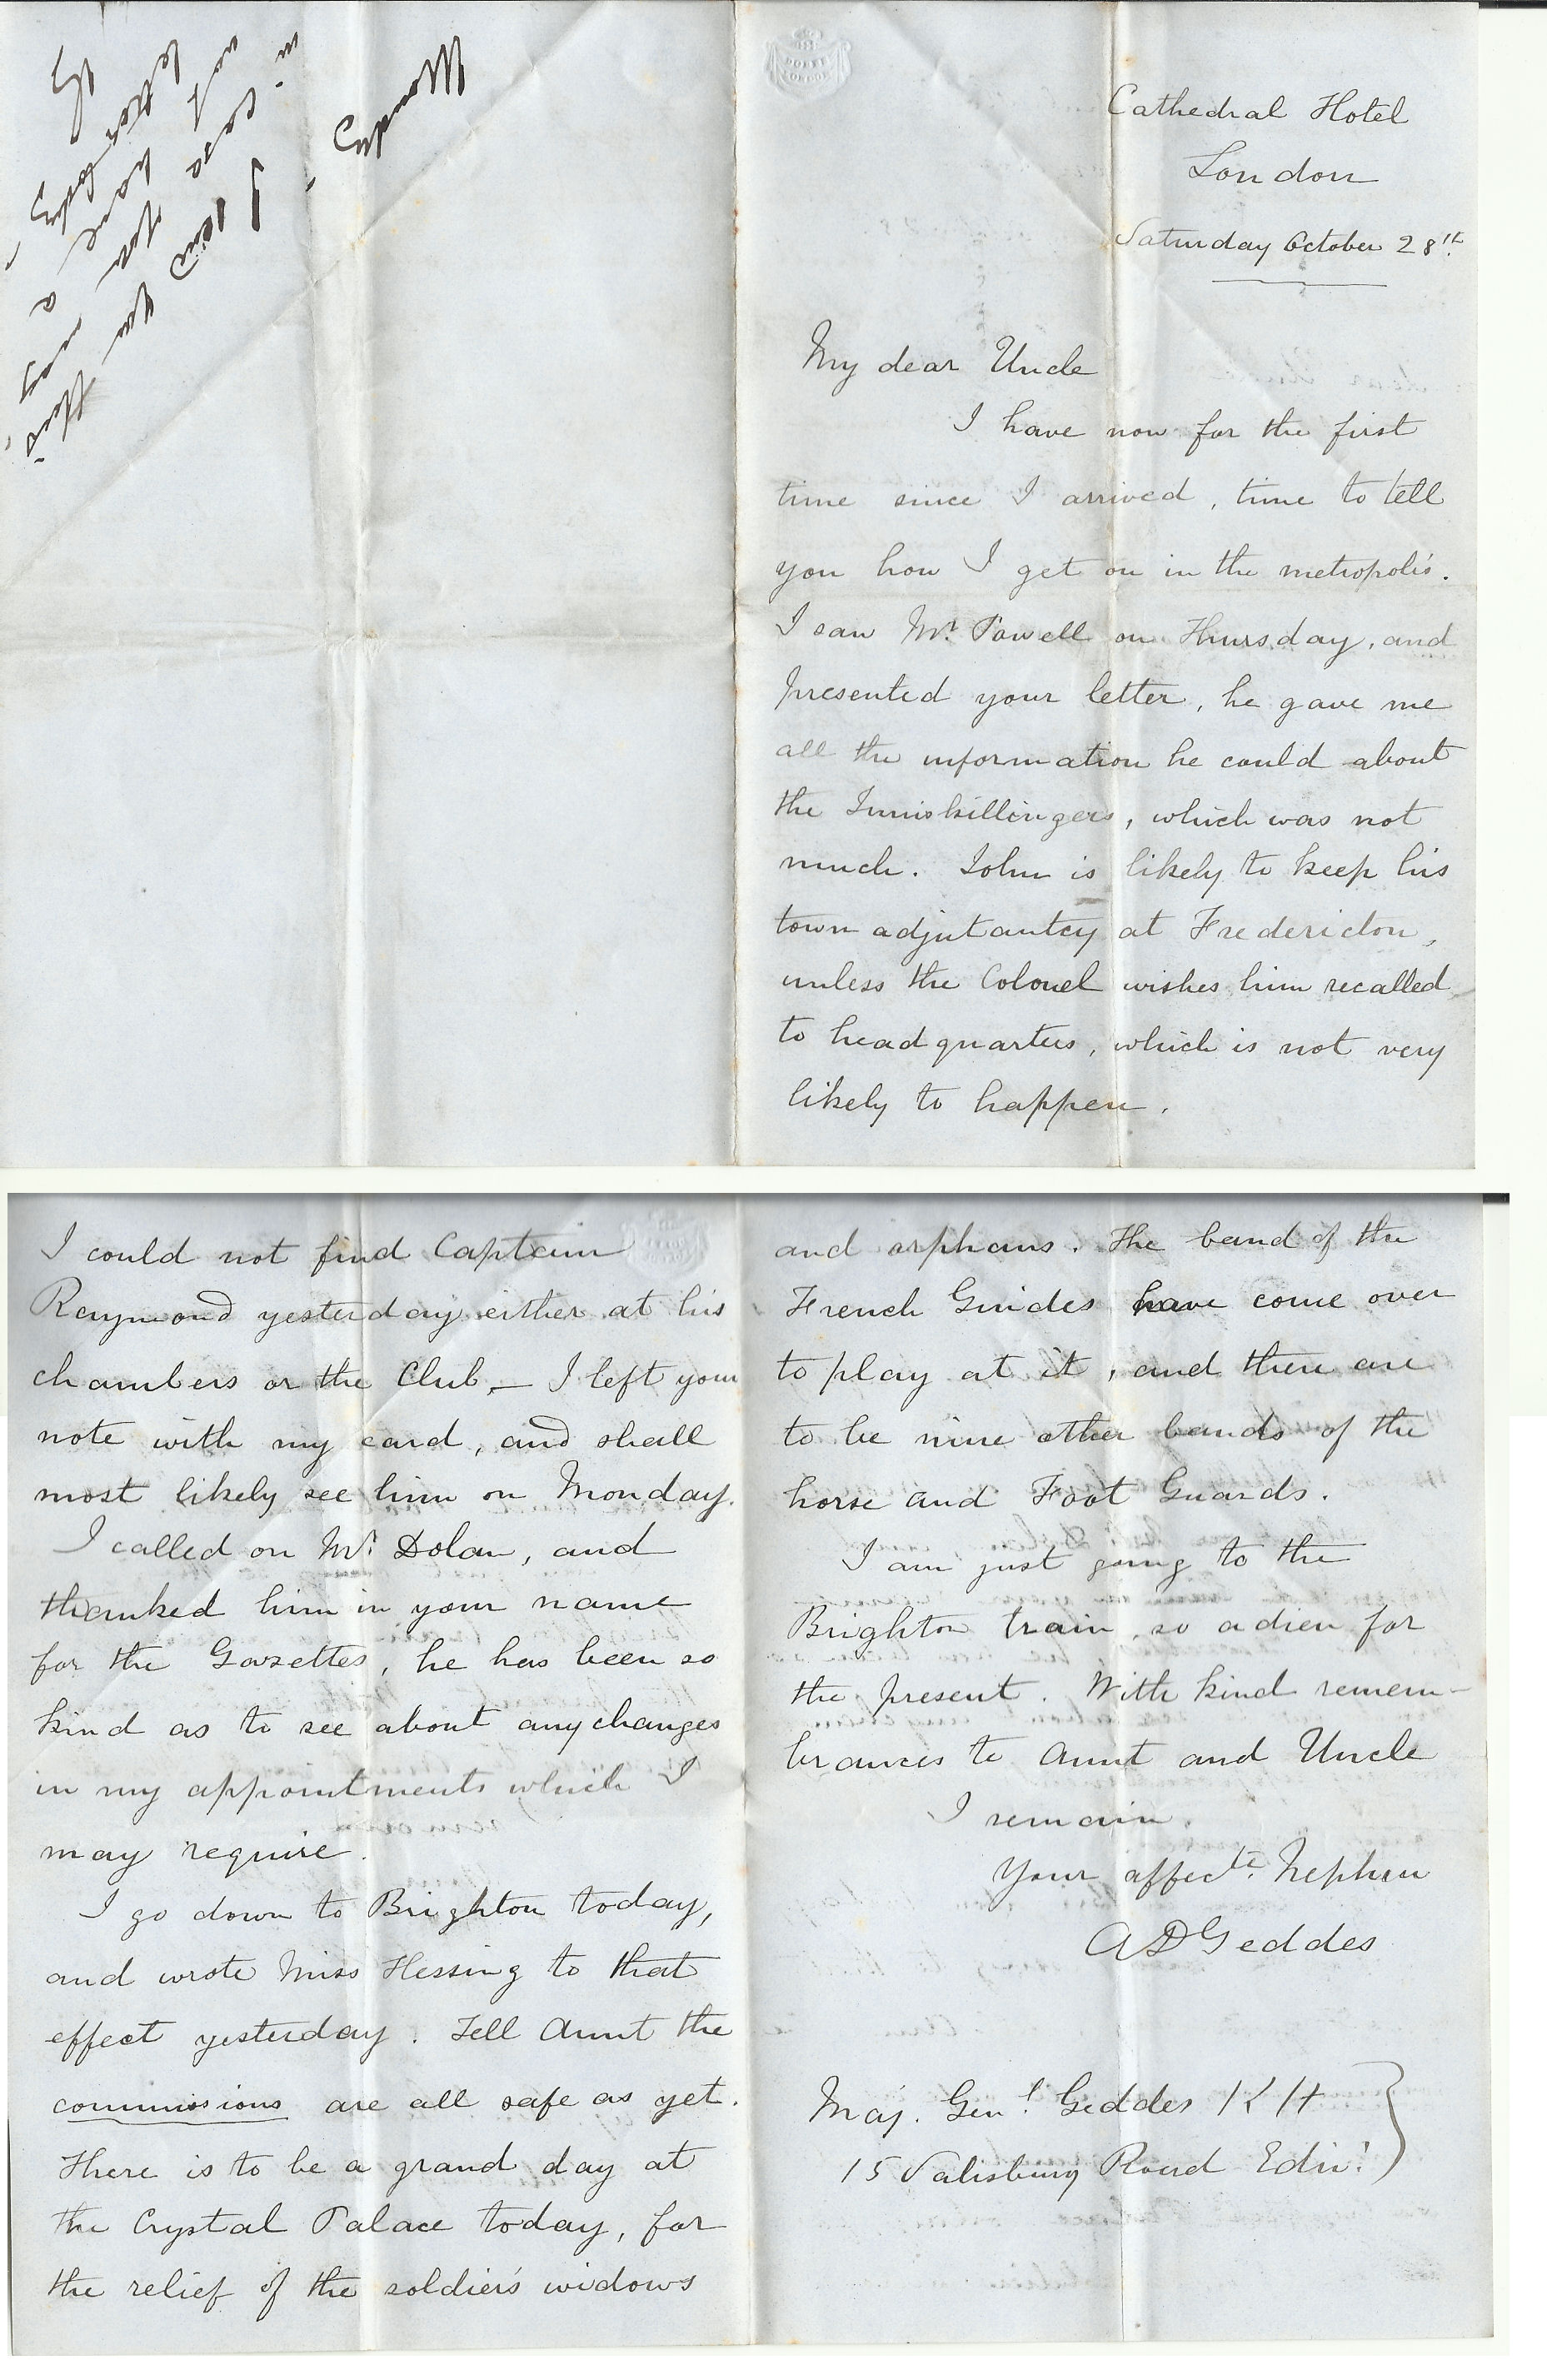 Cathedral Hotel
London
Saturday October 28th.
My dear Uncle
I have now for the first
time since I arrived, time to tell
you how I get on in the metropolis.
I saw Mr. Powell on Thursday, and
presented your letter, he gave me
all the information he could about
the Inniskillingers, which was not
much. John is likely to keep his
town adjutantcy at Fredericton,
unless the Colonel wishes him recalled
to head quarters, which is not very
likely to happen.
I could not find Captain
Raymond yesterday either at his
chambers or the Club, — I left your
note with my card, and shall
most likely see him on Monday.
I called on Mr. Dolan, and
thanked him in your name
for the Gazettes, he has been so
kind as to see about any changes
in my appointments which I
may require.
I go down to Brighton today,
and wrote Miss Hessing to that
effect yesterday. Tell Aunt the
commissions are all safe as yet.
There is to be a grand day at
the Crystal Palace today, for
the relief of the soldier's widows
and orphans. The band of the
French Guides have come over
to play at it, and there are
to be nine other bands of the
horse and Foot Guards.
I am just going to the
Brighton train, so adieu for
the present. With kind remem-
brances to Aunt and Uncle
I remain
Your affecte. Nephew
A D Geddes
Maj. Genl. Geddes K H
15 Salisbury Road Edinr.